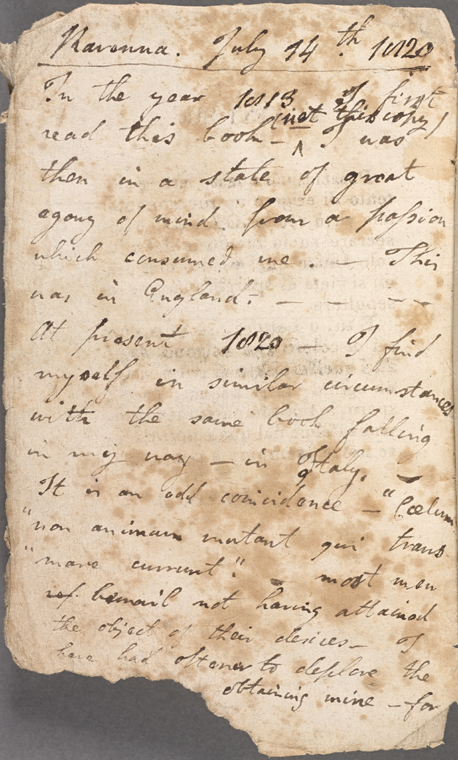 Ravenna. July 14th. 1820
In the year 1813 I first
read this book – (not this copy)
I was
then in a state of great
agony of mind from a passion
which consumed me — This
was in England. – – – –
At present 1820 — I find
myself in similar circumstances
with the same book falling
in my way – in Italy. –
It is an odd coincidence – "Coelum
"non animum mutant qui trans
"mare currunt." most men
bewail not having attained
the object of their desires – I
have had oftener to deplore the
obtaining mine – for